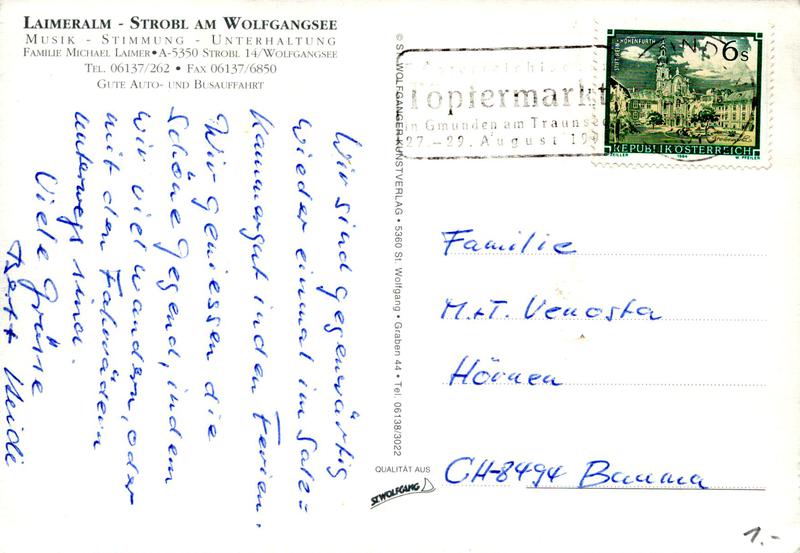 LAIMERALM - STROBL AM WOLFGANGSEE
MUSIK - STIMMUNG - UNTERHALTUNG
FAMILIE MICHAEL LAIMER • A-5350 STROBL 14/WOLFGANGSEE
TEL. 06137/262 • FAX 06137/6850
GUTE AUTO- UND BUSAUFFAHRT
Wir sind gegenwärtig
wieder einmal im Salz=
kammergut in den Ferien.
Wir geniessen die
schöne Gegend, indem
wir viel wandern, oder
mit den Fahrrädern
unterwegs sind.
Viele Grüsse
Heidi
© ST. WOLFGANGER KUNSTVERLAG • 5360 St. Wolfgang • Graben 44 • Tel. 06138/3022
QUALITÄT AUS
ST. WOLFGANG
Österreichischer
Töpfermarkt
in Gmunden am Traunsee
27.-29. August 19
STIFT REIN-HOHENFURTH
6s
REPUBLIK ÖSTERREICH
ZEILLER 1984 W. PFEILER
Familie
M.+T. Venosta
Hörnen
CH-8494 Bauma
1.-